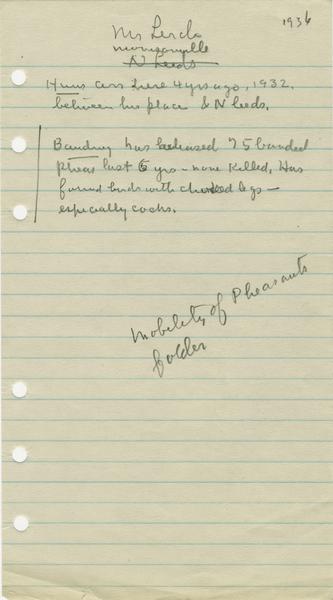 1936
Mr Lerdo
Morrisonville
N Leeds
Huns cars here 4 yrs ago, 1932,
between his place & N Leeds.
Banding has released 75 banded
pheas last 6 yrs – none killed. Has
found birds with legs –
especially cocks.
Mobility of Pheasants
folder